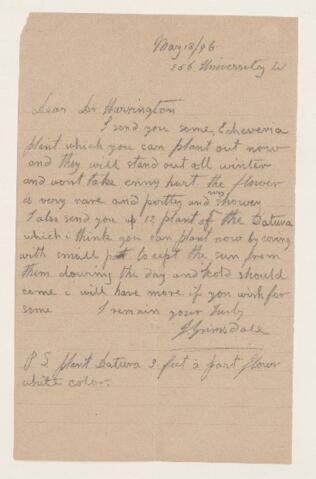 May 18/96
256 Universetey W
Dear Dr Harrington
I send you some Echeveria
plant which you can plant out now
and they will stand out all winter
and wont take enny hurt. the flower
is very rare and prettey and very showey
I also send you up 12 plant of the Datura
which i think you can plant now by covring
with small pot to cept the sun from
them douring the day and kold should
come i will have more if you wish for
some I remain your truly
J Grimsdale
P S plant Datura 3 feet a part flowr
white color.